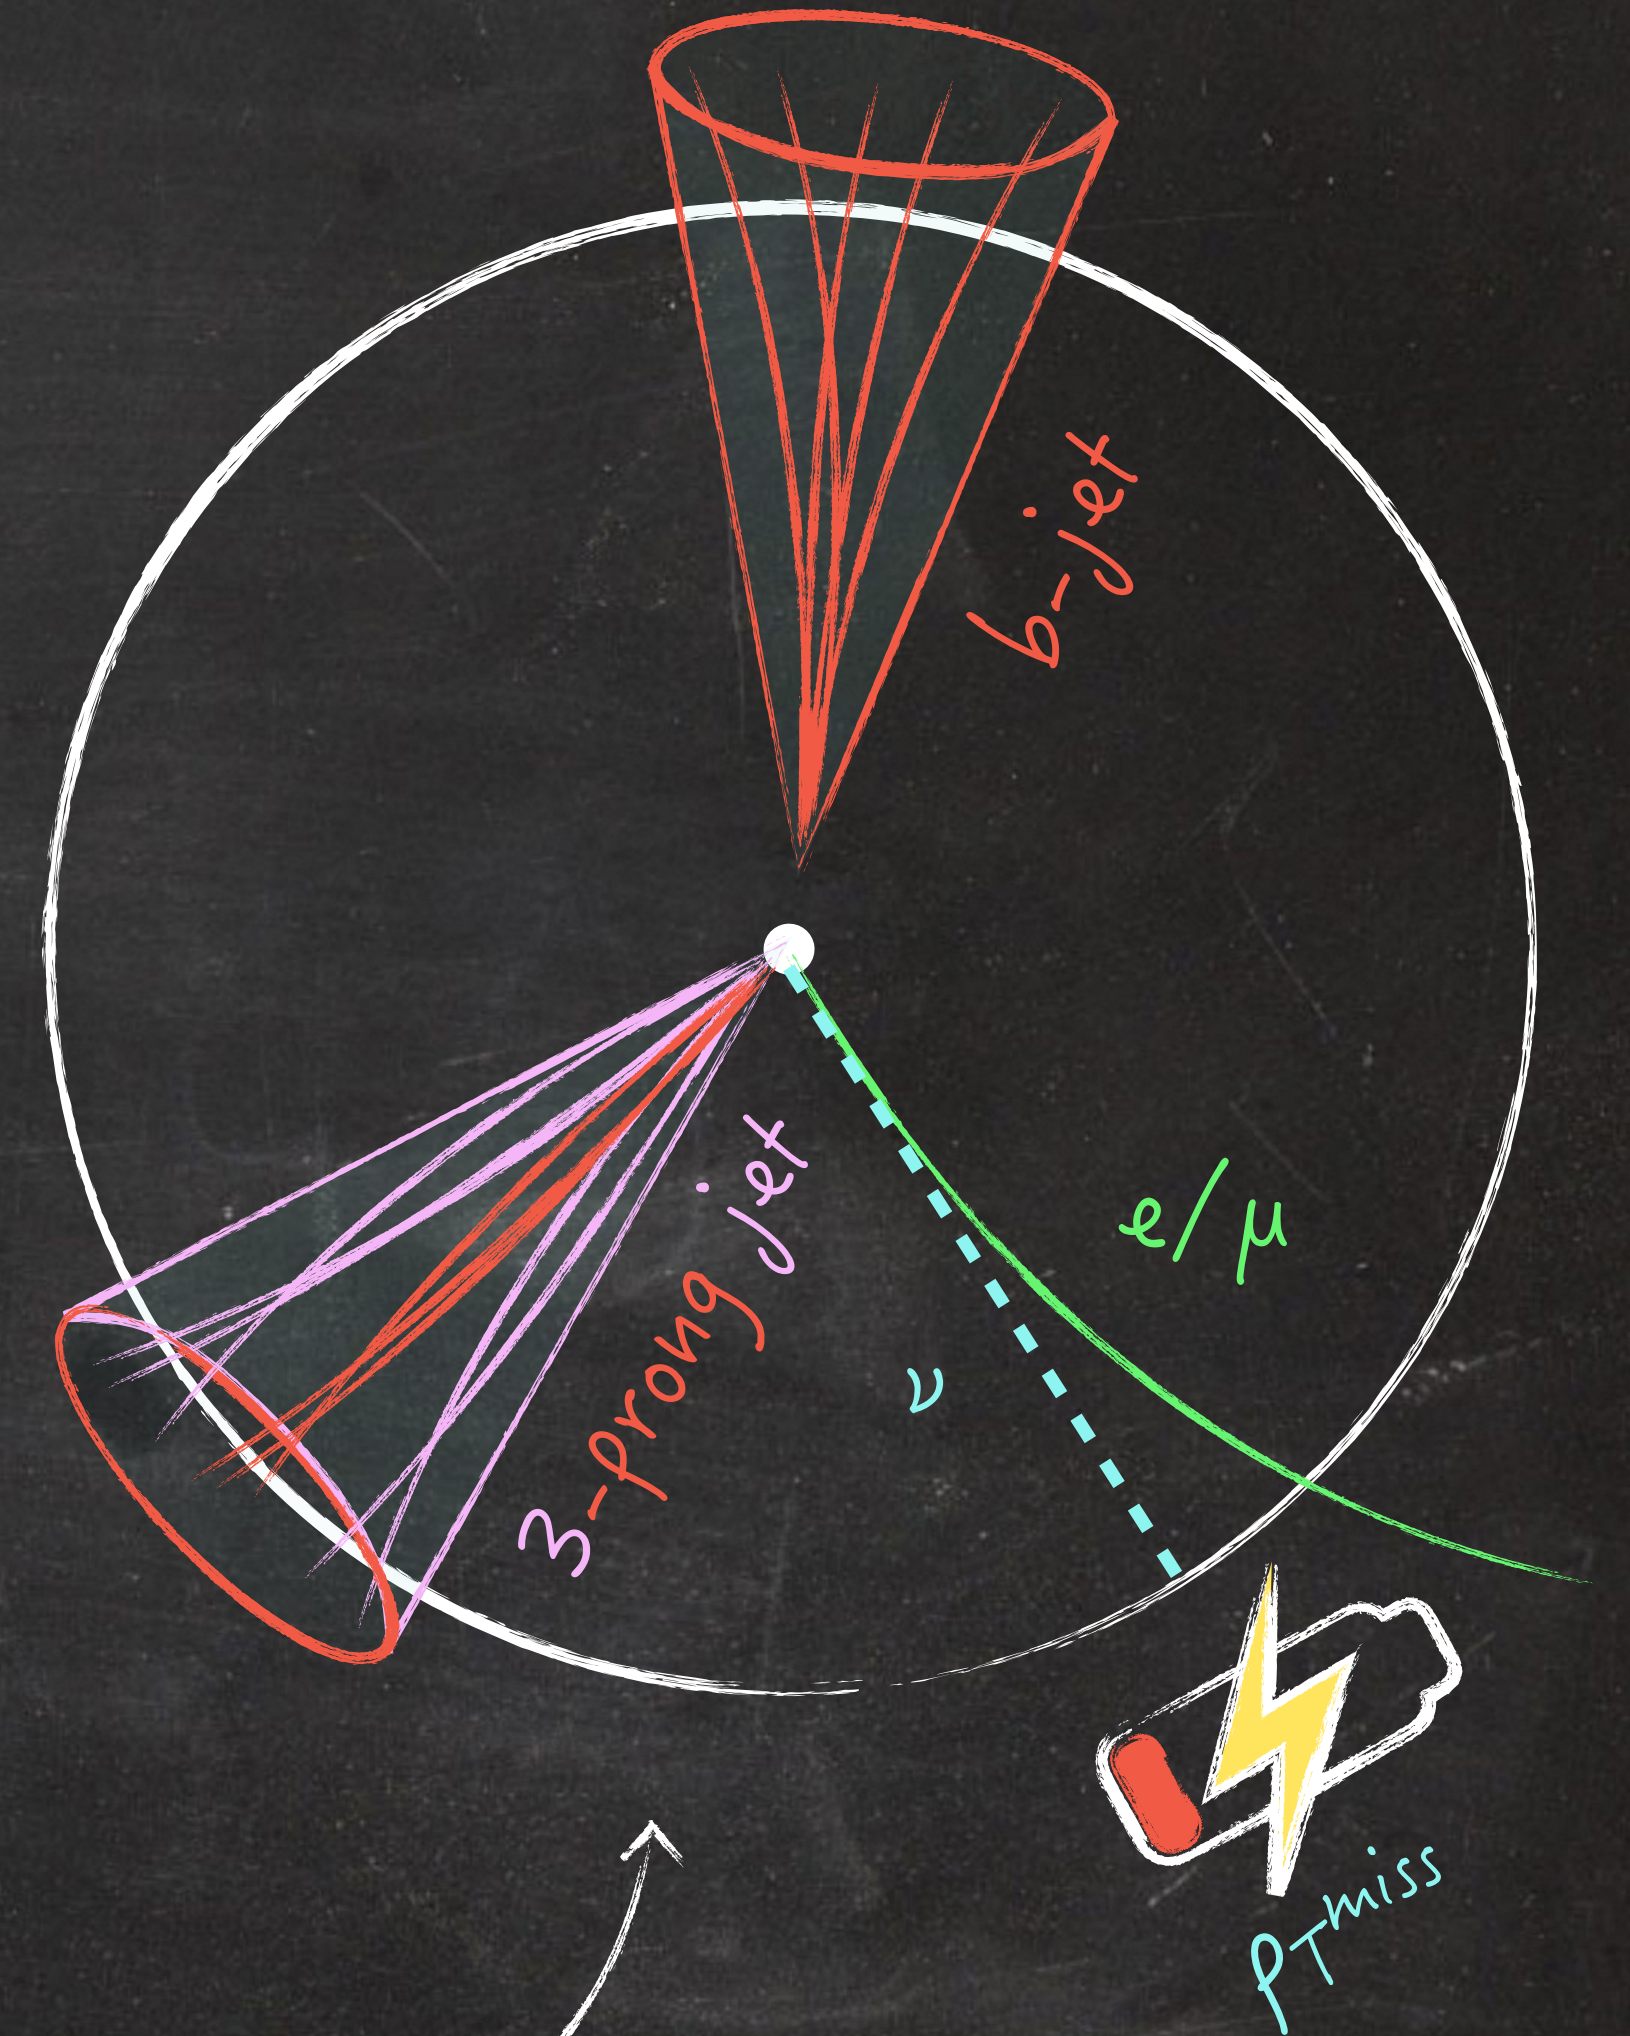 b-jet
3-prong jet
e/μ
ν
pTmiss